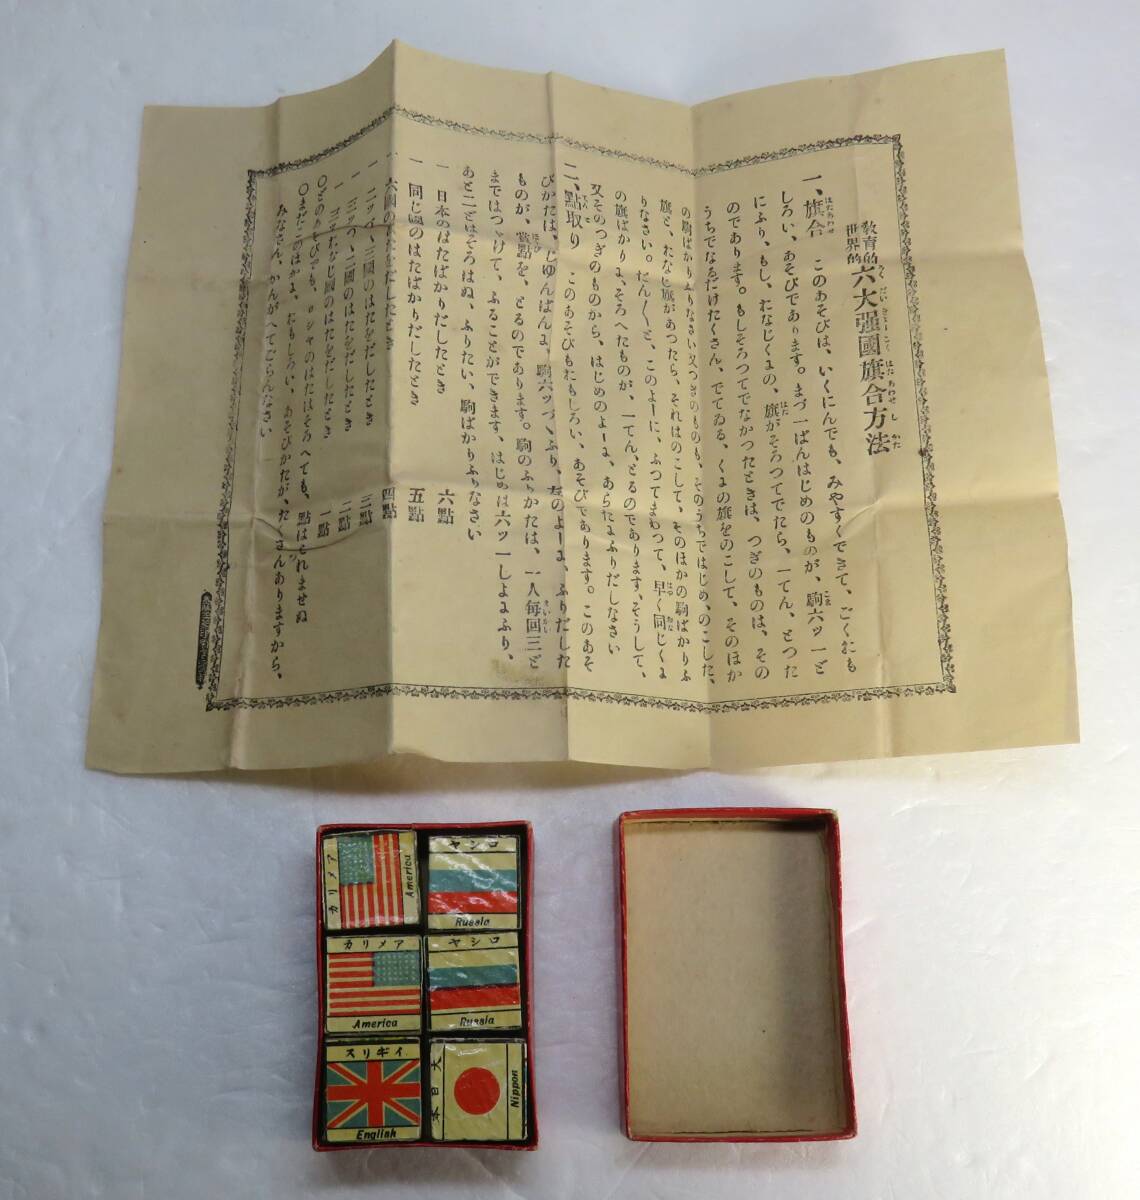 教育的
世界的
六大强國旗合方法
くだいきょーこくはたあわせしかた
一、旗合 このあそびは、いくにんでも、みやすくできて、ごくおも
はたあわせ
しろい、あそびであります。まづ一ばんはじめのものが、駒六ッ一ど
こま
にふり、もし、おなじくにの、旗がそろつてでたら、一てん、とつた
はた
のであります。もしそろつてでなかつたときは、つぎのものは、その
うちでなるだけたくさん、でてゐる、くにの旗をのこして、そのほか
の駒ばかりふりなさい又つぎのものも、そのうちではじめ、のこした、
旗と、おなじ旗があつたら、それはのこして、そのほかの駒ばかりふ
りなさい。だん〱と、このよーに、ふつてまわつて、早く同じくに
はや おな
の旗ばかりに、そろへたものが、一てん、とるのであります、そうして、
又そのつぎのものから、はじめのよーに、あらたにふりだしなさい
二、點取り このあそびもおもしろい、あそびであります。このあそ
てんとり
びかたは、じゆんばんに、駒六ッづゝふり、左のよーに、ふりだした
ものが、賞點を、とるのであります。駒のふりかたは、一人每回三ど
まではつゞけて、ふることができます、はじめは六ッ一しよにふり、
あと二どはそろはぬ、ふりたい、駒ばかりふりなさい
一 日本のはたばかりだしたとき 六點
一 同じ國のはたばかりだしたとき 五點
一 六國のはたをだしたとき 四點
一 二ッづゝ三國のはたをだしたとき 三點
一 三ッづゝ二國のはたをだしたとき 二點
一 三ッおなじ國のはたをだしたとき 一點
○どのあそびでも、ロシヤのはたはそろへても、點はとれませぬ
○まだこのほかに、おもしろい、あそびかたが、たくさんありますから、
みなさん、かんがへてごらんなさい
カリメア
America
ヤシロ
Russia
カリメア
America
ヤシロ
Russia
スリギイ
English
大日本
Nippon